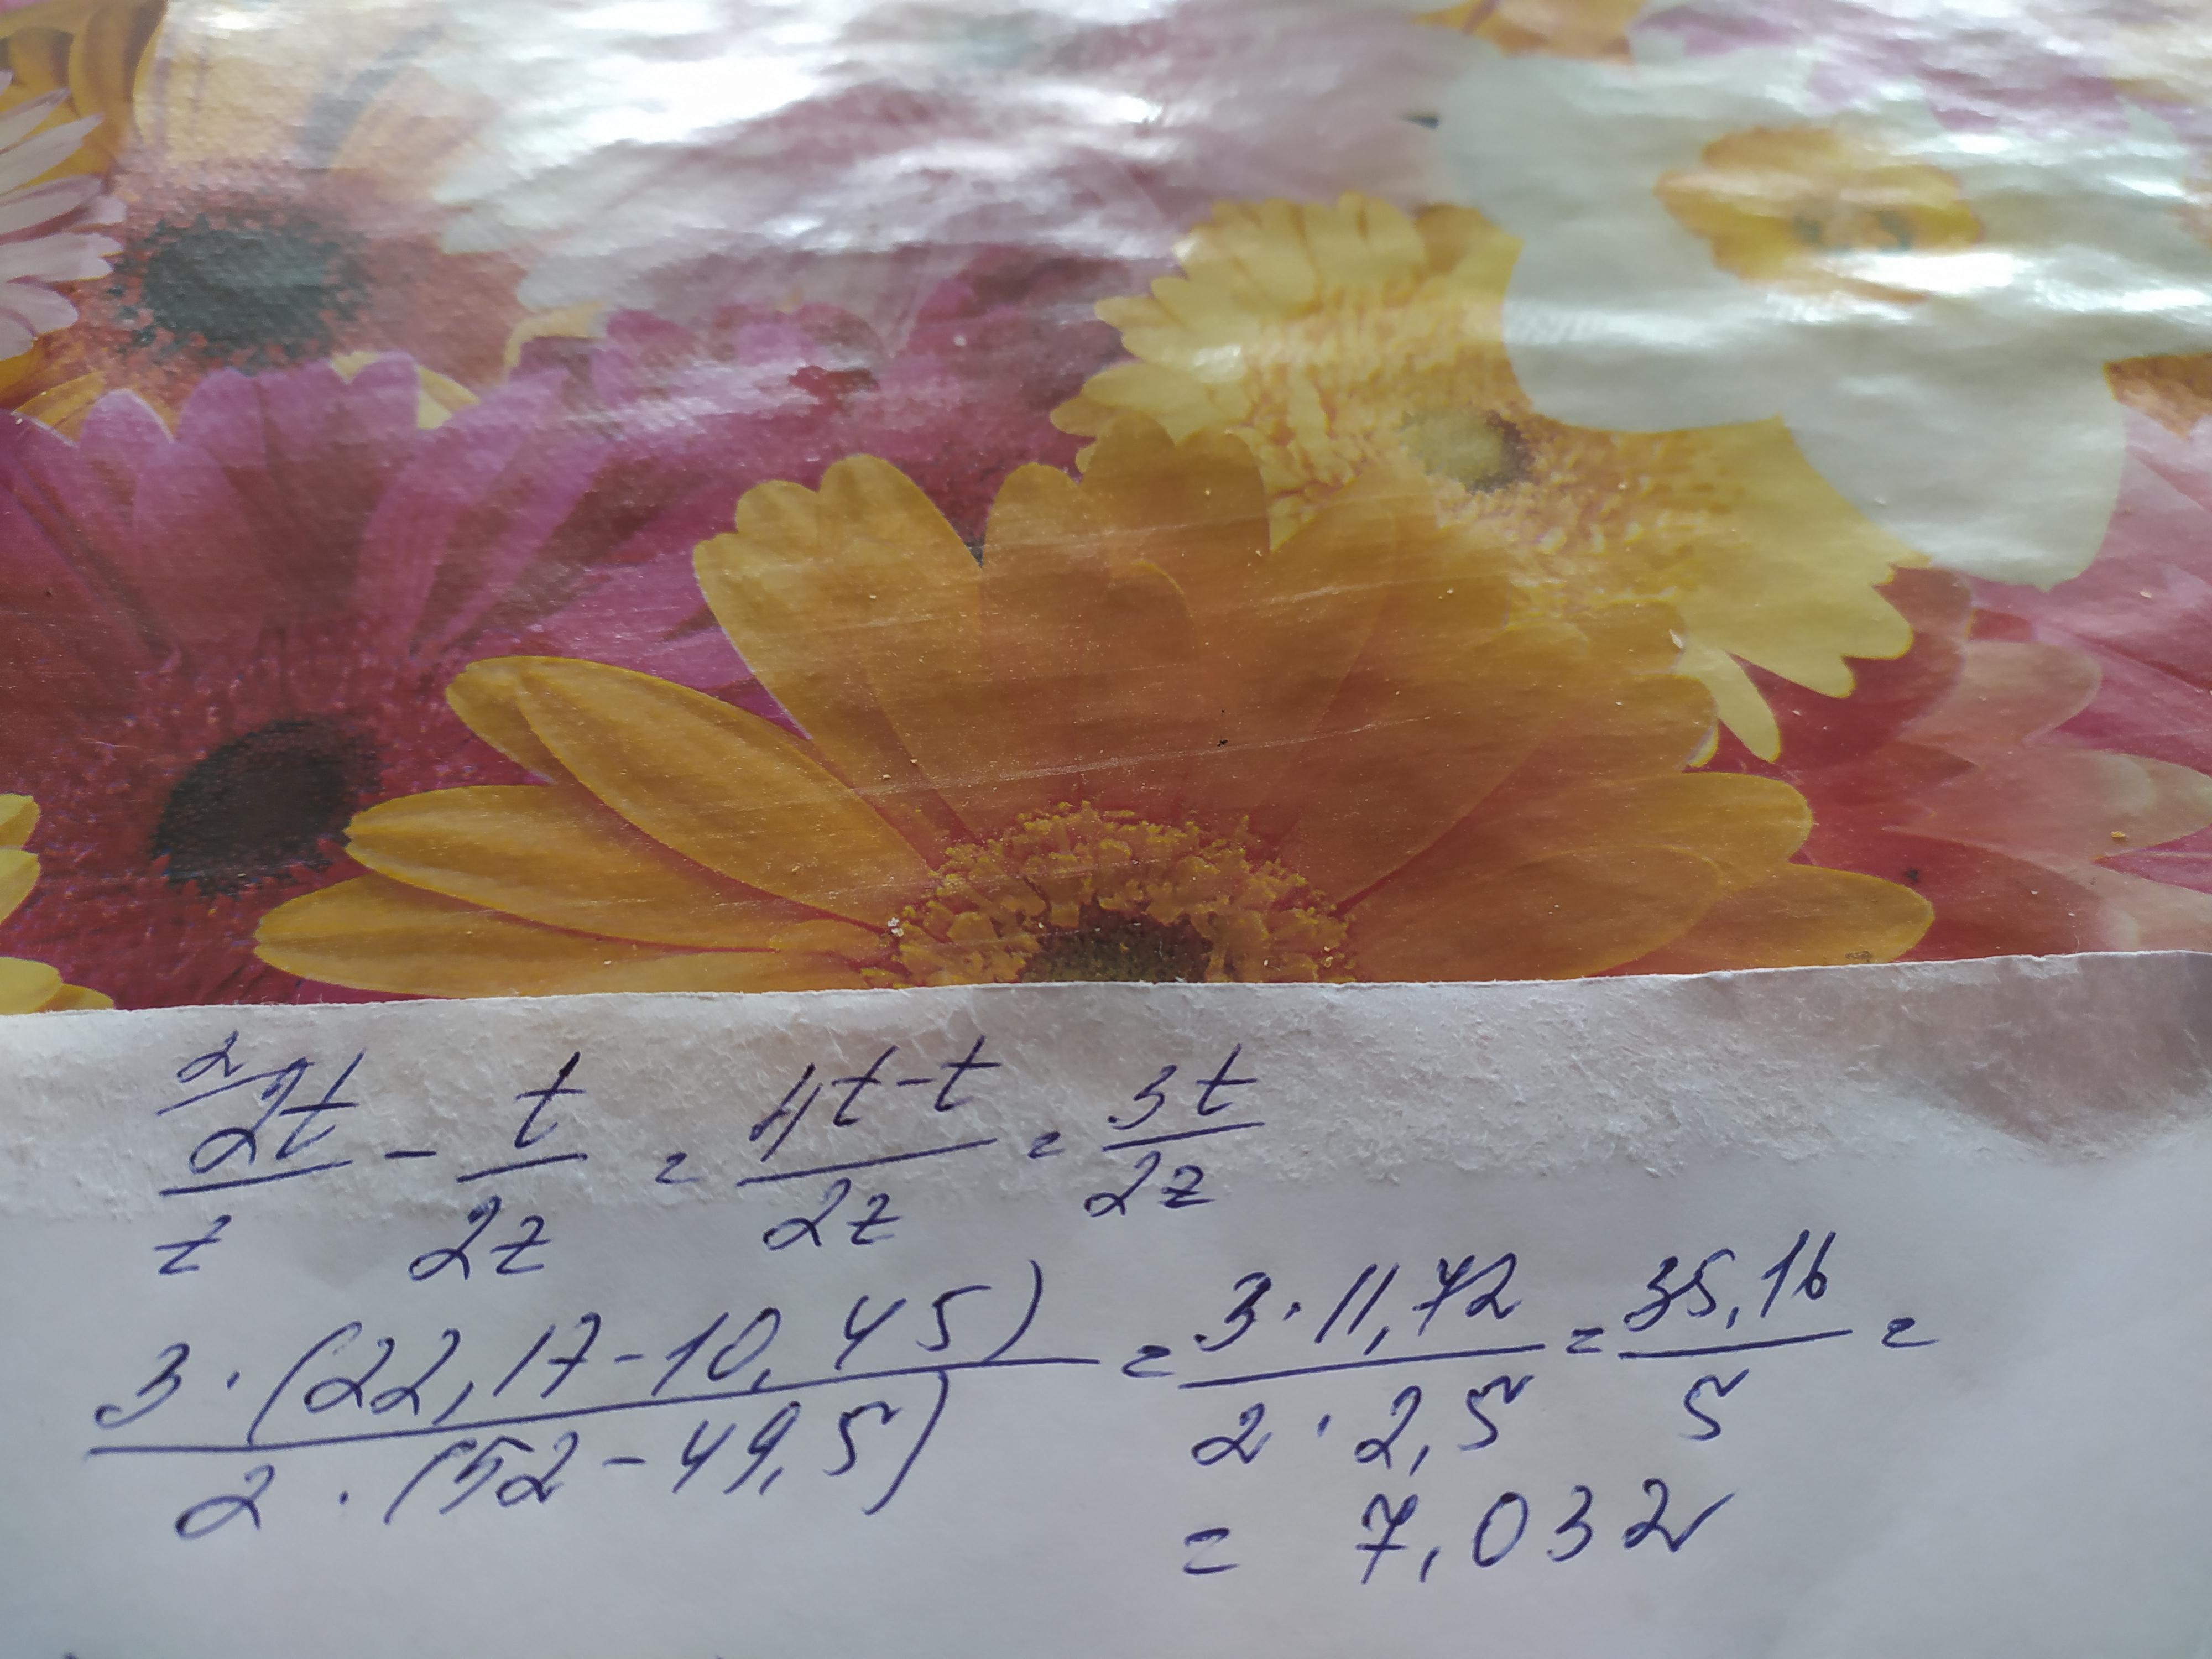 2\ 2t/z - t/2z = 4t-t/2z = 3t/2z
3·(22,17-10,45)/2·(52-49,5) = 3·11,72/2·2,5 = 35,16/5 =
= 7,032